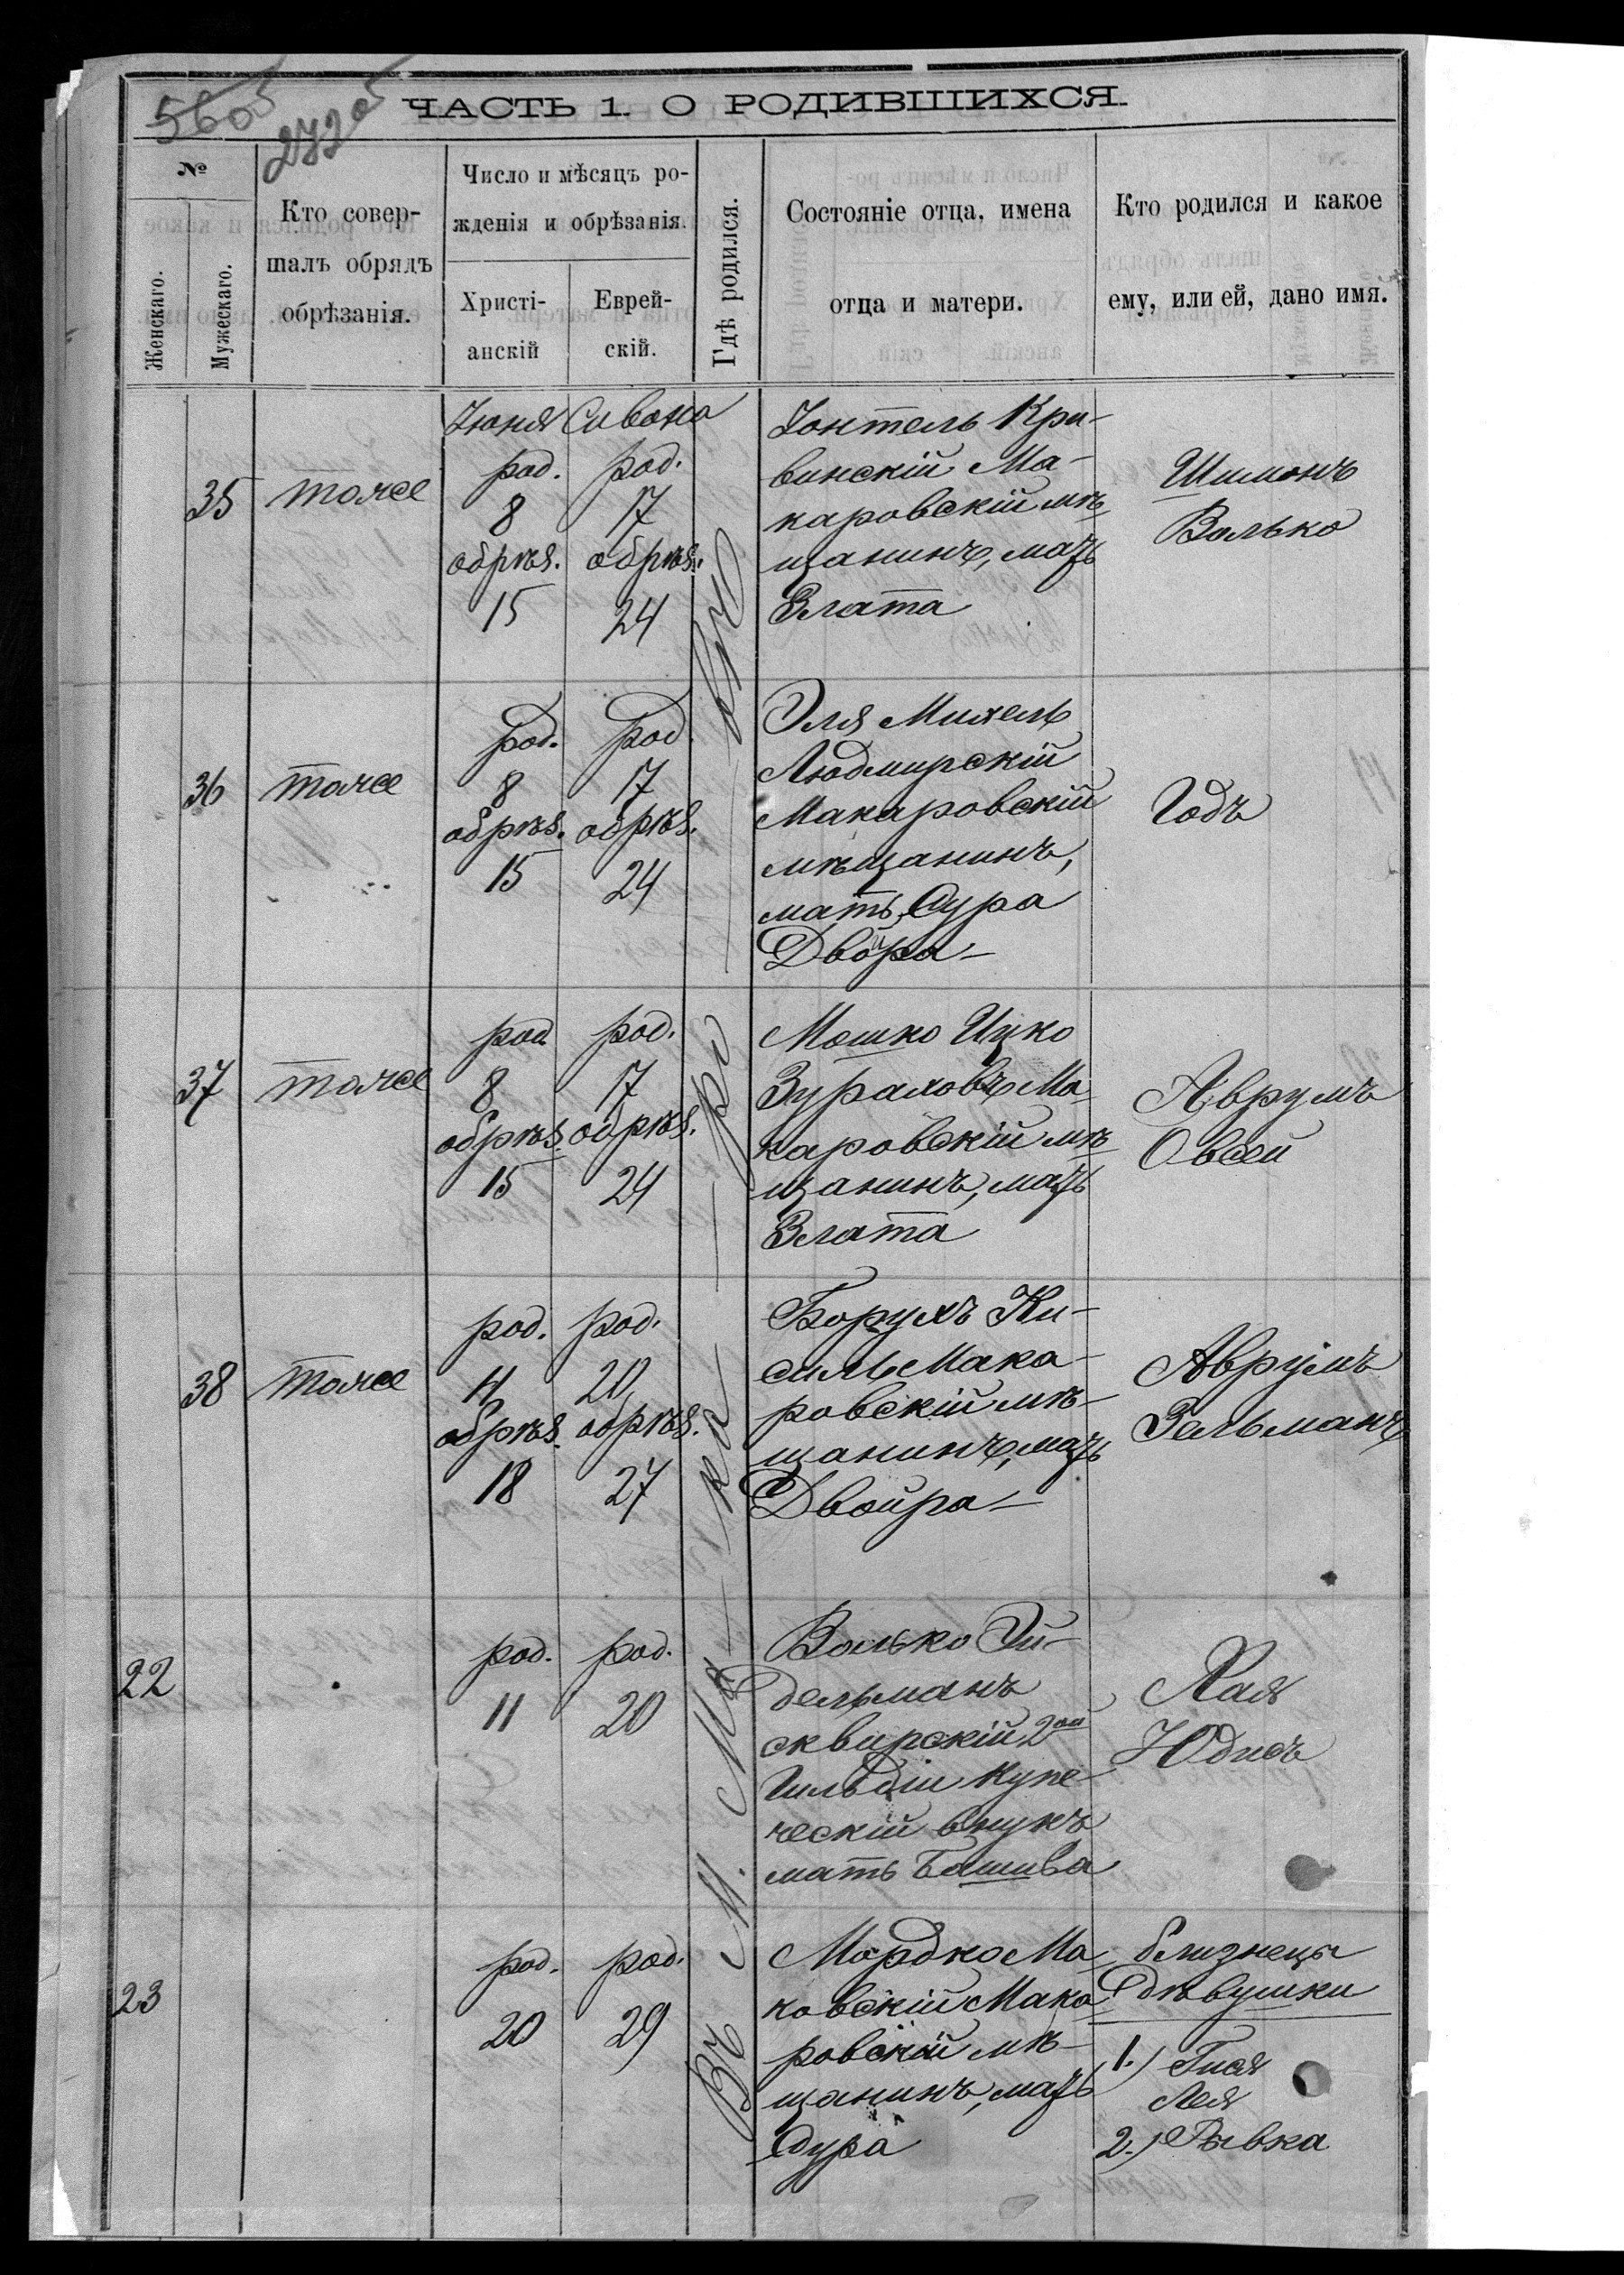 560
272 об
ЧАСТЬ 1. О РОДИВШИХСЯ.
№
Женскаго.
Мужескаго.
Кто совер-
шалъ обрядъ
обрѣзанія.
Число и мѣсяцъ ро-
жденія и обрѣзанія.
Христі-
анскій
Еврей-
скій.
Гдѣ родился.
Состояніе отца, имена
отца и матери.
Кто родился и какое
ему, или ей, дано имя.
Въ М. Ма-ка-ро-вѣ
Іюня
Сивона
35
тоже
род.
8
обрѣз.
15
род.
17
обрѣз.
24
Іонтель Кри-
винскій Ма-
каровскій мѣ
щанинъ, мать
Злата
Шимонъ
Волько
36
тоже
род.
8
обрѣз.
15
род
17
обрѣз.
24
Эля Михель
Людмирскій
Макаровскій
мѣщанинъ,
мать, Сура
Двойра
Годъ
37
тоже
род
8
обрѣз.
15
род.
17
обрѣз.
24
Мошко Ицко
Маровскій Ма
каровскій мѣ
щанинъ, мать
Злата
Аврумъ
Овсей
38
тоже
род.
11
обрѣз.
18
род.
20
обрѣз.
27
Борухъ Ки-
силь Мака-
ровскій мѣ-
щанинъ, мать
Двойра
Аврумъ
Зельманъ
22
род.
11
род.
20
Волько Эй-
дельманъ
сквирскій 2ой
Гильдіи купе-
ческій внукъ
мать Башива
Хая
Юдисъ
23
род.
20
род.
29
Мордко Ма
ковскій Мака
ровскій мѣ-
щанинъ, мать
Сура
близнецы
дѣвушки
1.) Гися
Лея
2.) Рывка